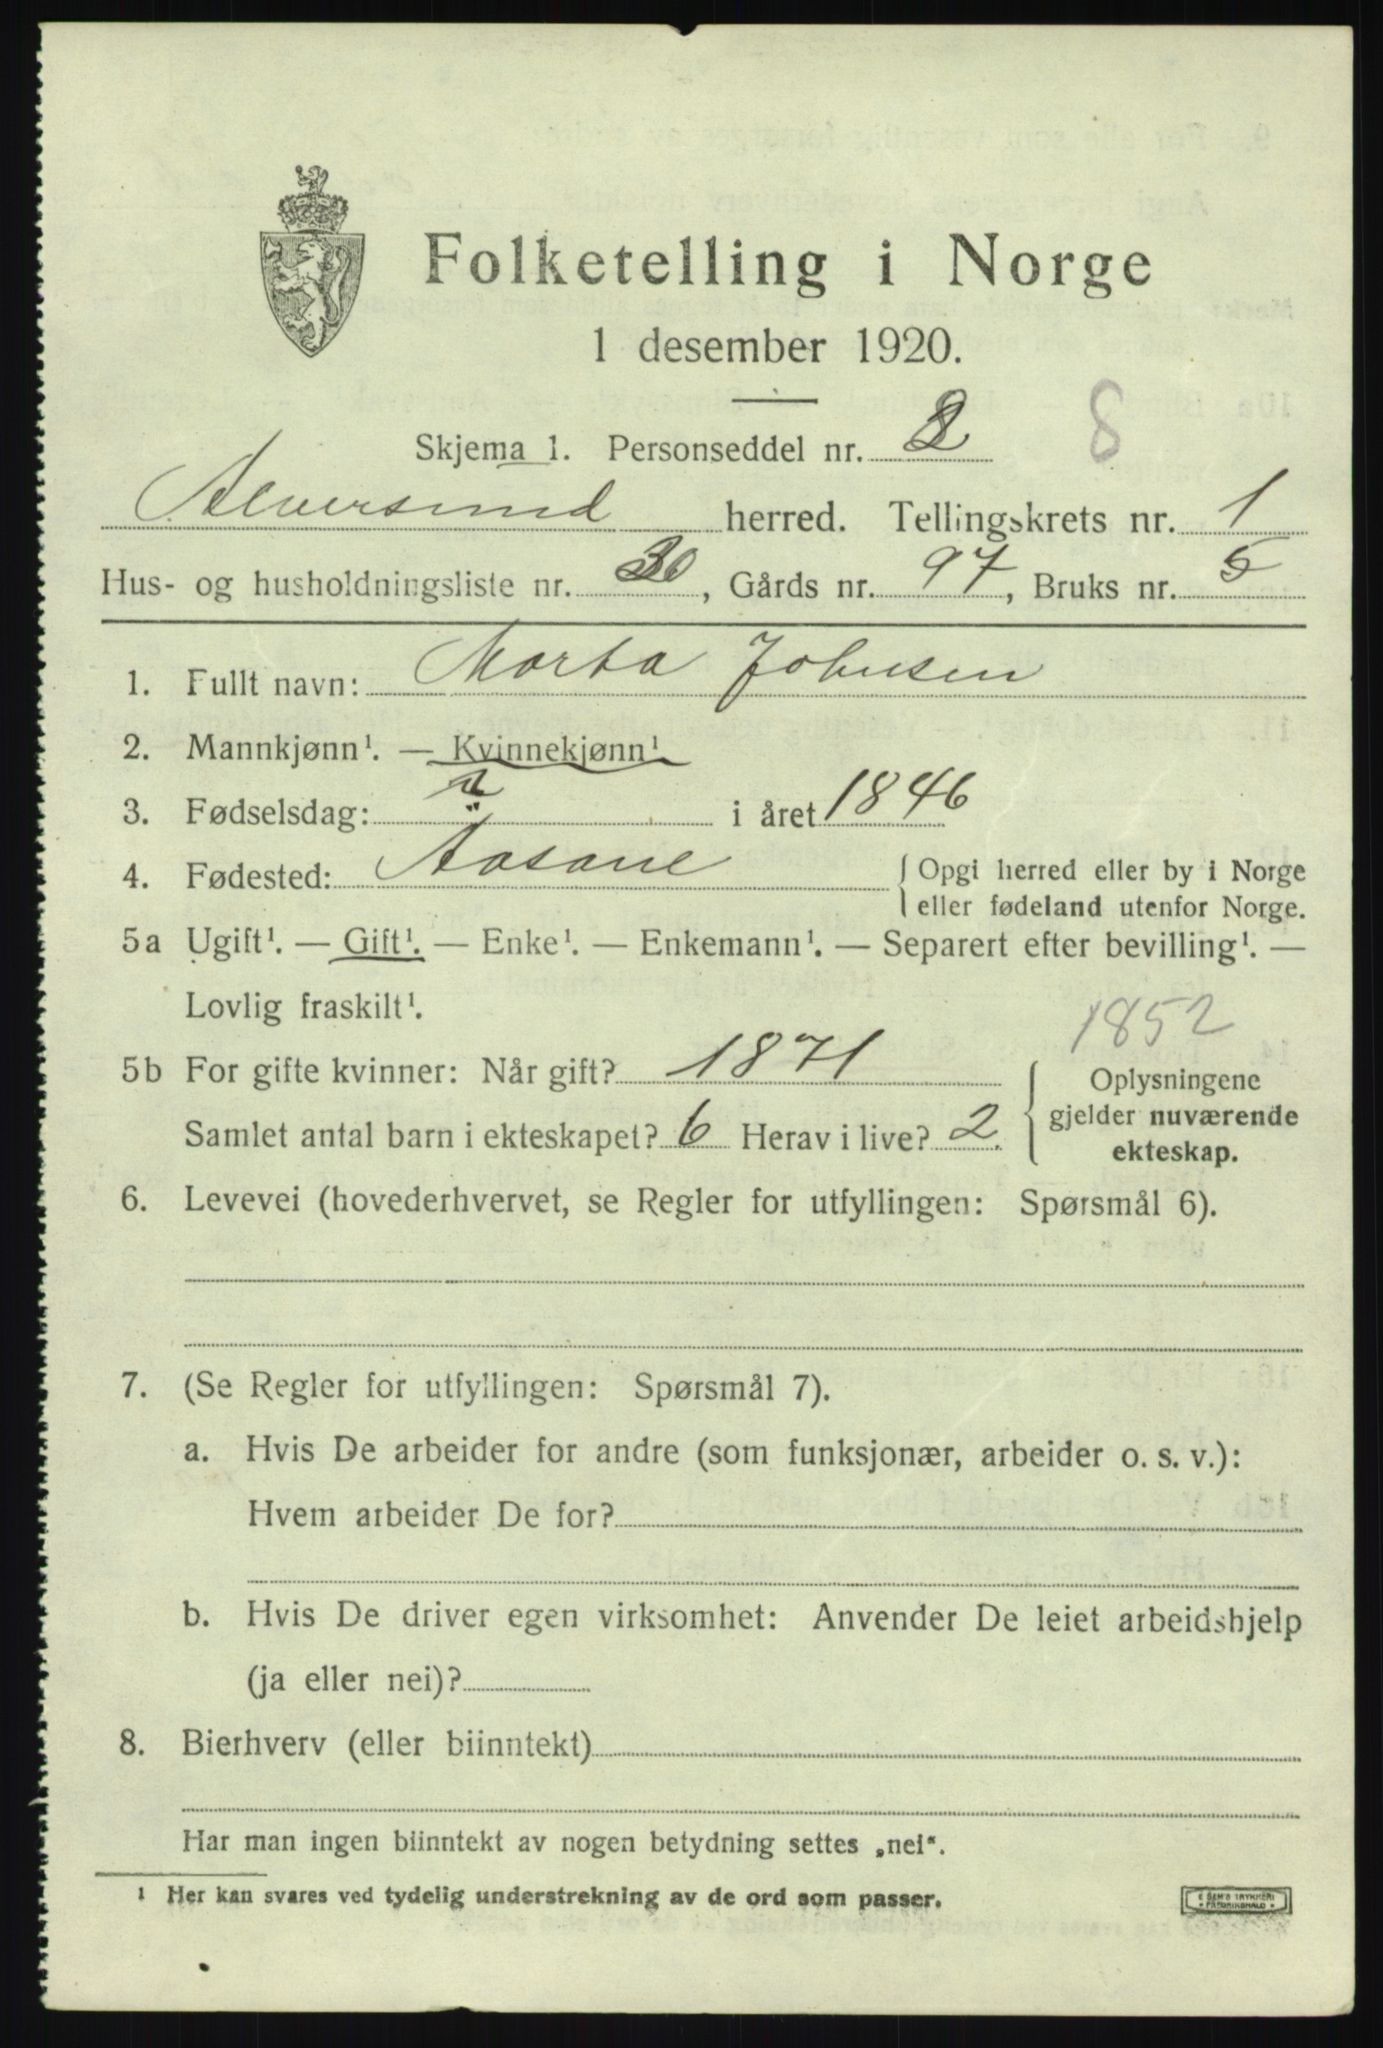 Folketelling i Norge
1 desember 1920.
Skjema 1. Personseddel nr. 2 8
Alversund herred. Tellingskrets nr. 1
Hus- og husholdningsliste nr. 30, Gårds nr. 97, Bruks nr. 5
1. Fullt navn: Marta Johnsen
2. Mannkjønn¹. — Kvinnekjønn¹
3. Fødselsdag: ? i året 1846
4. Fødested: Aasane { Opgi herred eller by i Norge
eller fødeland utenfor Norge.
5a Ugift¹. — Gift¹. — Enke¹. — Enkemann¹. — Separert efter bevilling¹. —
Lovlig fraskilt¹.
1852
5b For gifte kvinner: Når gift? 1871
Samlet antal barn i ekteskapet? 6 Herav i live? 2.
Oplysningene
gjelder nuværende
ekteskap.
6. Levevei (hovederhvervet, se Regler for utfyllingen: Spørsmål 6).
7. (Se Regler for utfyllingen: Spørsmål 7).
a. Hvis De arbeider for andre (som funksjonær, arbeider o. s. v.):
Hvem arbeider De for?
b. Hvis De driver egen virksomhet: Anvender De leiet arbeidshjelp
(ja eller nei)?
8. Bierhverv (eller biinntekt)
Har man ingen biinntekt av nogen betydning settes „nei“.
¹ Her kan svares ved tydelig understrekning av de ord som passer.